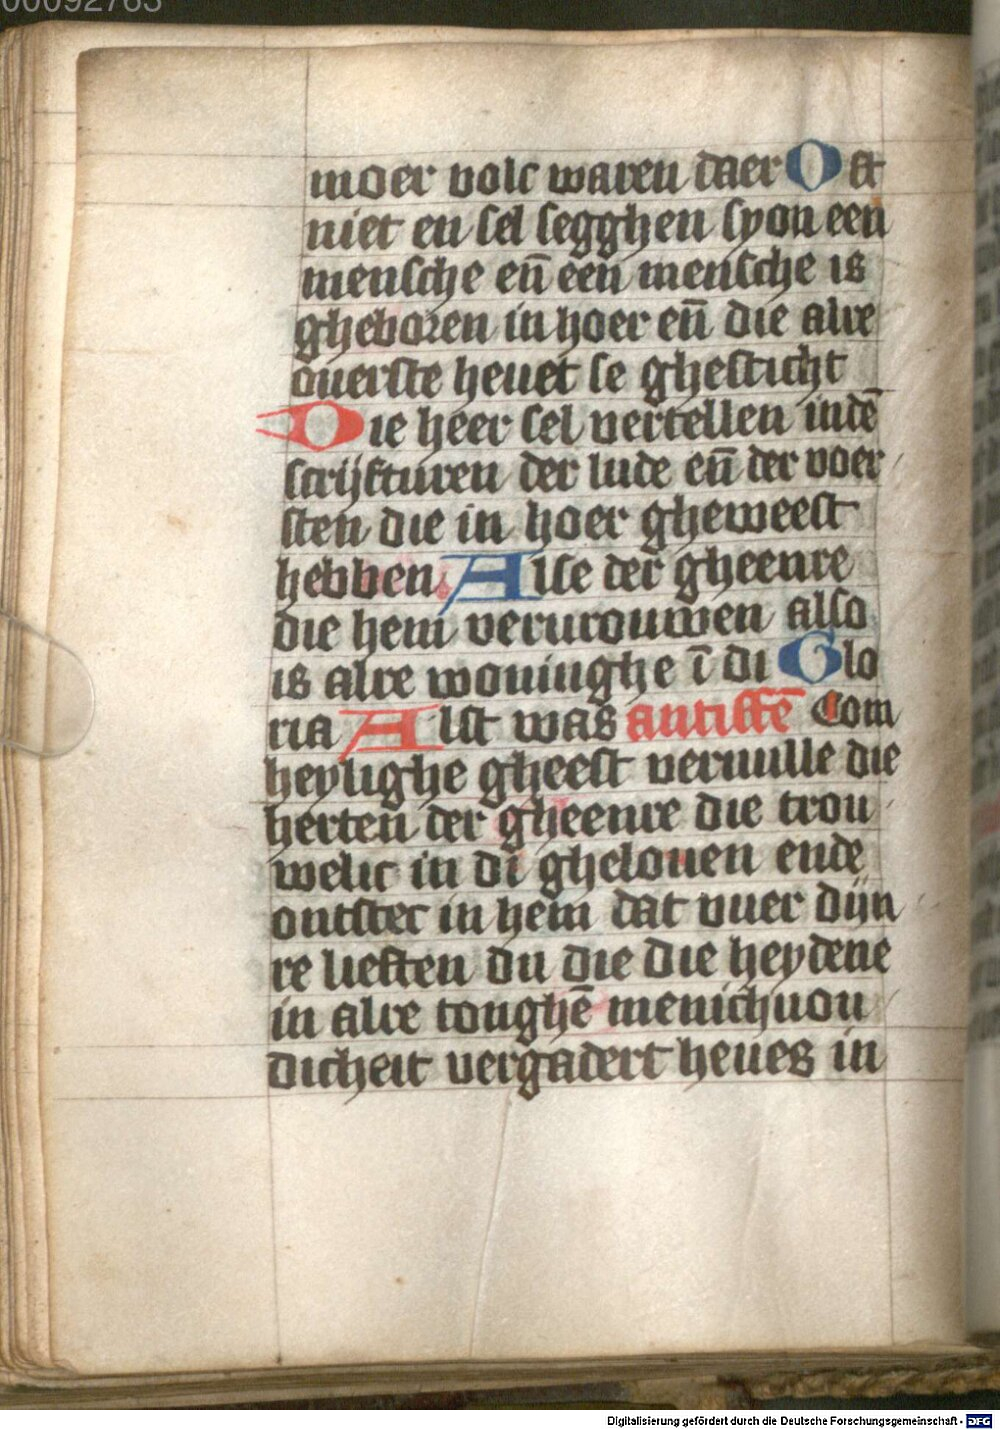 00092763
moer volc waren daer Oft
niet en sel segghen syon een
mensche en̄ een mensche is
gheboren in hoer en̄ die alre
ouerste heuet se ghesticht
Die heer sel vertellen indē
scrijfturen der lude en̄ der voer
sten die in hoer gheweest
hebben Alse der gheenre
die hem verurouwen also
is alre woninghe ī di Glo
ria Alst was antiffē Com
heylighe gheest veruulle die
herten der gheenre die trou
welic in di ghelouen ende
ontstec in hem dat vuer dijn
re lieften du die die heydene
in alre tonghē menichuou
dicheit vergadert heues in
Digitalisierung gefördert durch die Deutsche Forschungsgemeinschaft - DFG